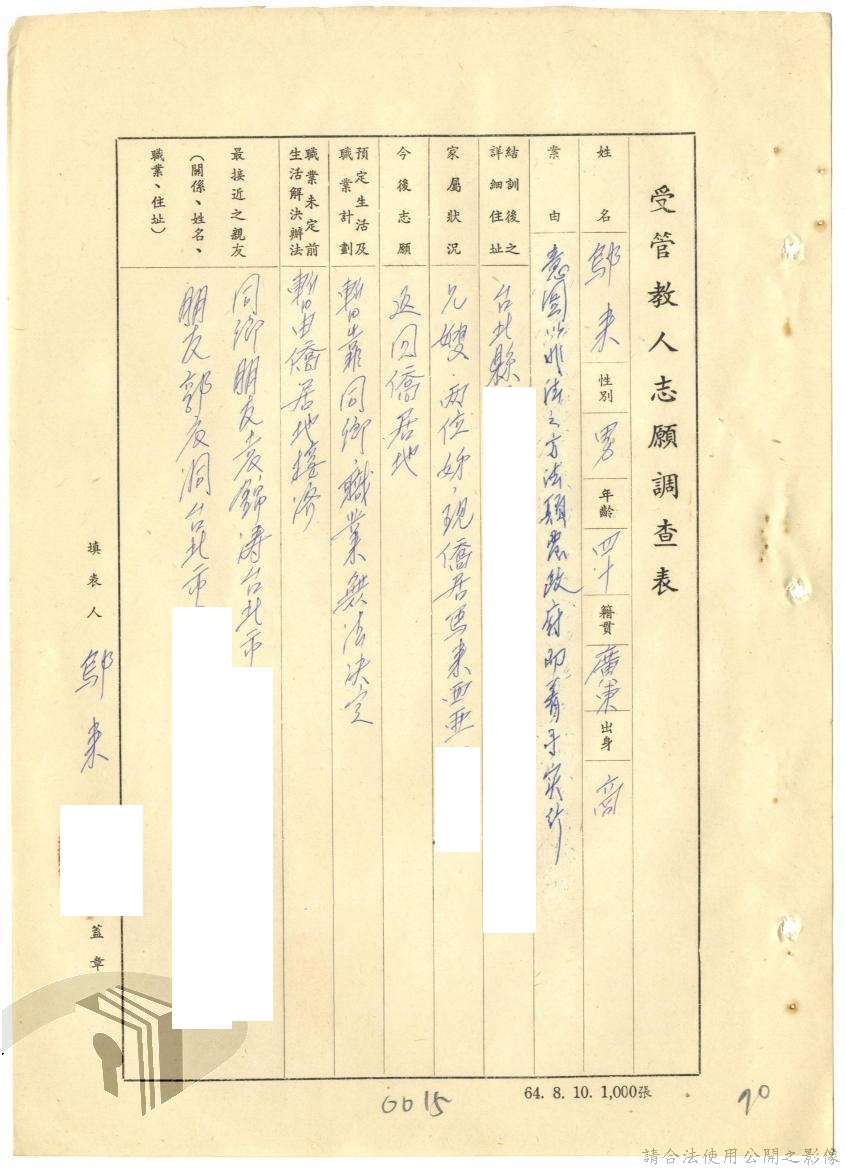 受管教人志願調查表
姓名 鄔來 性別 男 年齡 四十 籍貫 廣東 出身 商
案由 意圖以非法之方法顛覆政府而着手實行
結訓後之詳細住址 台北縣
家屬狀況 兄嫂、兩位姊、現僑居馬來西亞
今後志願 返回僑居地
預定生活及職業計劃 暫靠同鄉、職業無法決定
職業未定前生活解決辦法 暫由僑居地接濟
最接近之親友 同鄉朋友袁錦濤台北市
(關係、姓名、 朋友郭友洞台北市
職業、住址)
填表人 鄔來 蓋章
64. 8. 10. 1,000張
0015
90
請合法使用公開之影像